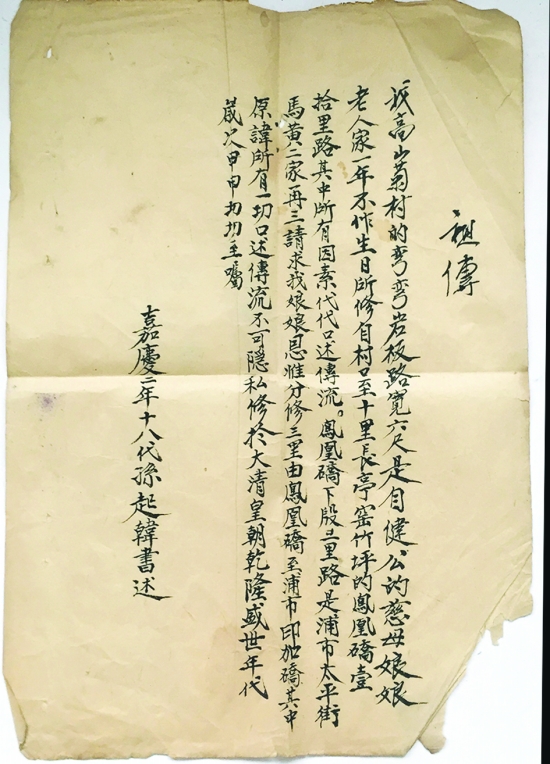 祖傳
我高山菊村的弯弯岩板路寬六尺是自健公的慈母娘娘
老人家一年不作生日所修自村口至十里長亭窑竹坪的鳳凰礄壹
拾里路其中所有因素代代口述傳流。鳳凰礄下段三里路是浦市太平街
馬黄二家再三請求我娘娘恩惟分修三里由鳳凰礄至浦市印加礄其中
原諱所有一切口述傳流不可隱私修於大清皇朝乾隆盛世年代
歲次甲申切切至囑
嘉慶二年十八代孫起韓書述